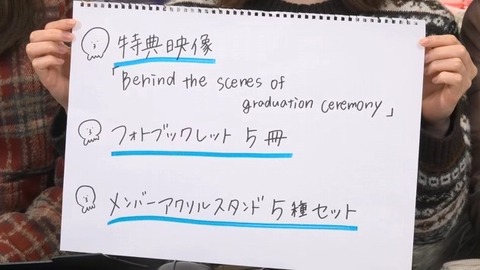 特典映像
「Behind the scenes of
graduation ceremony」
フォトブックレット 5冊
メンバーアクリルスタンド 5種セット